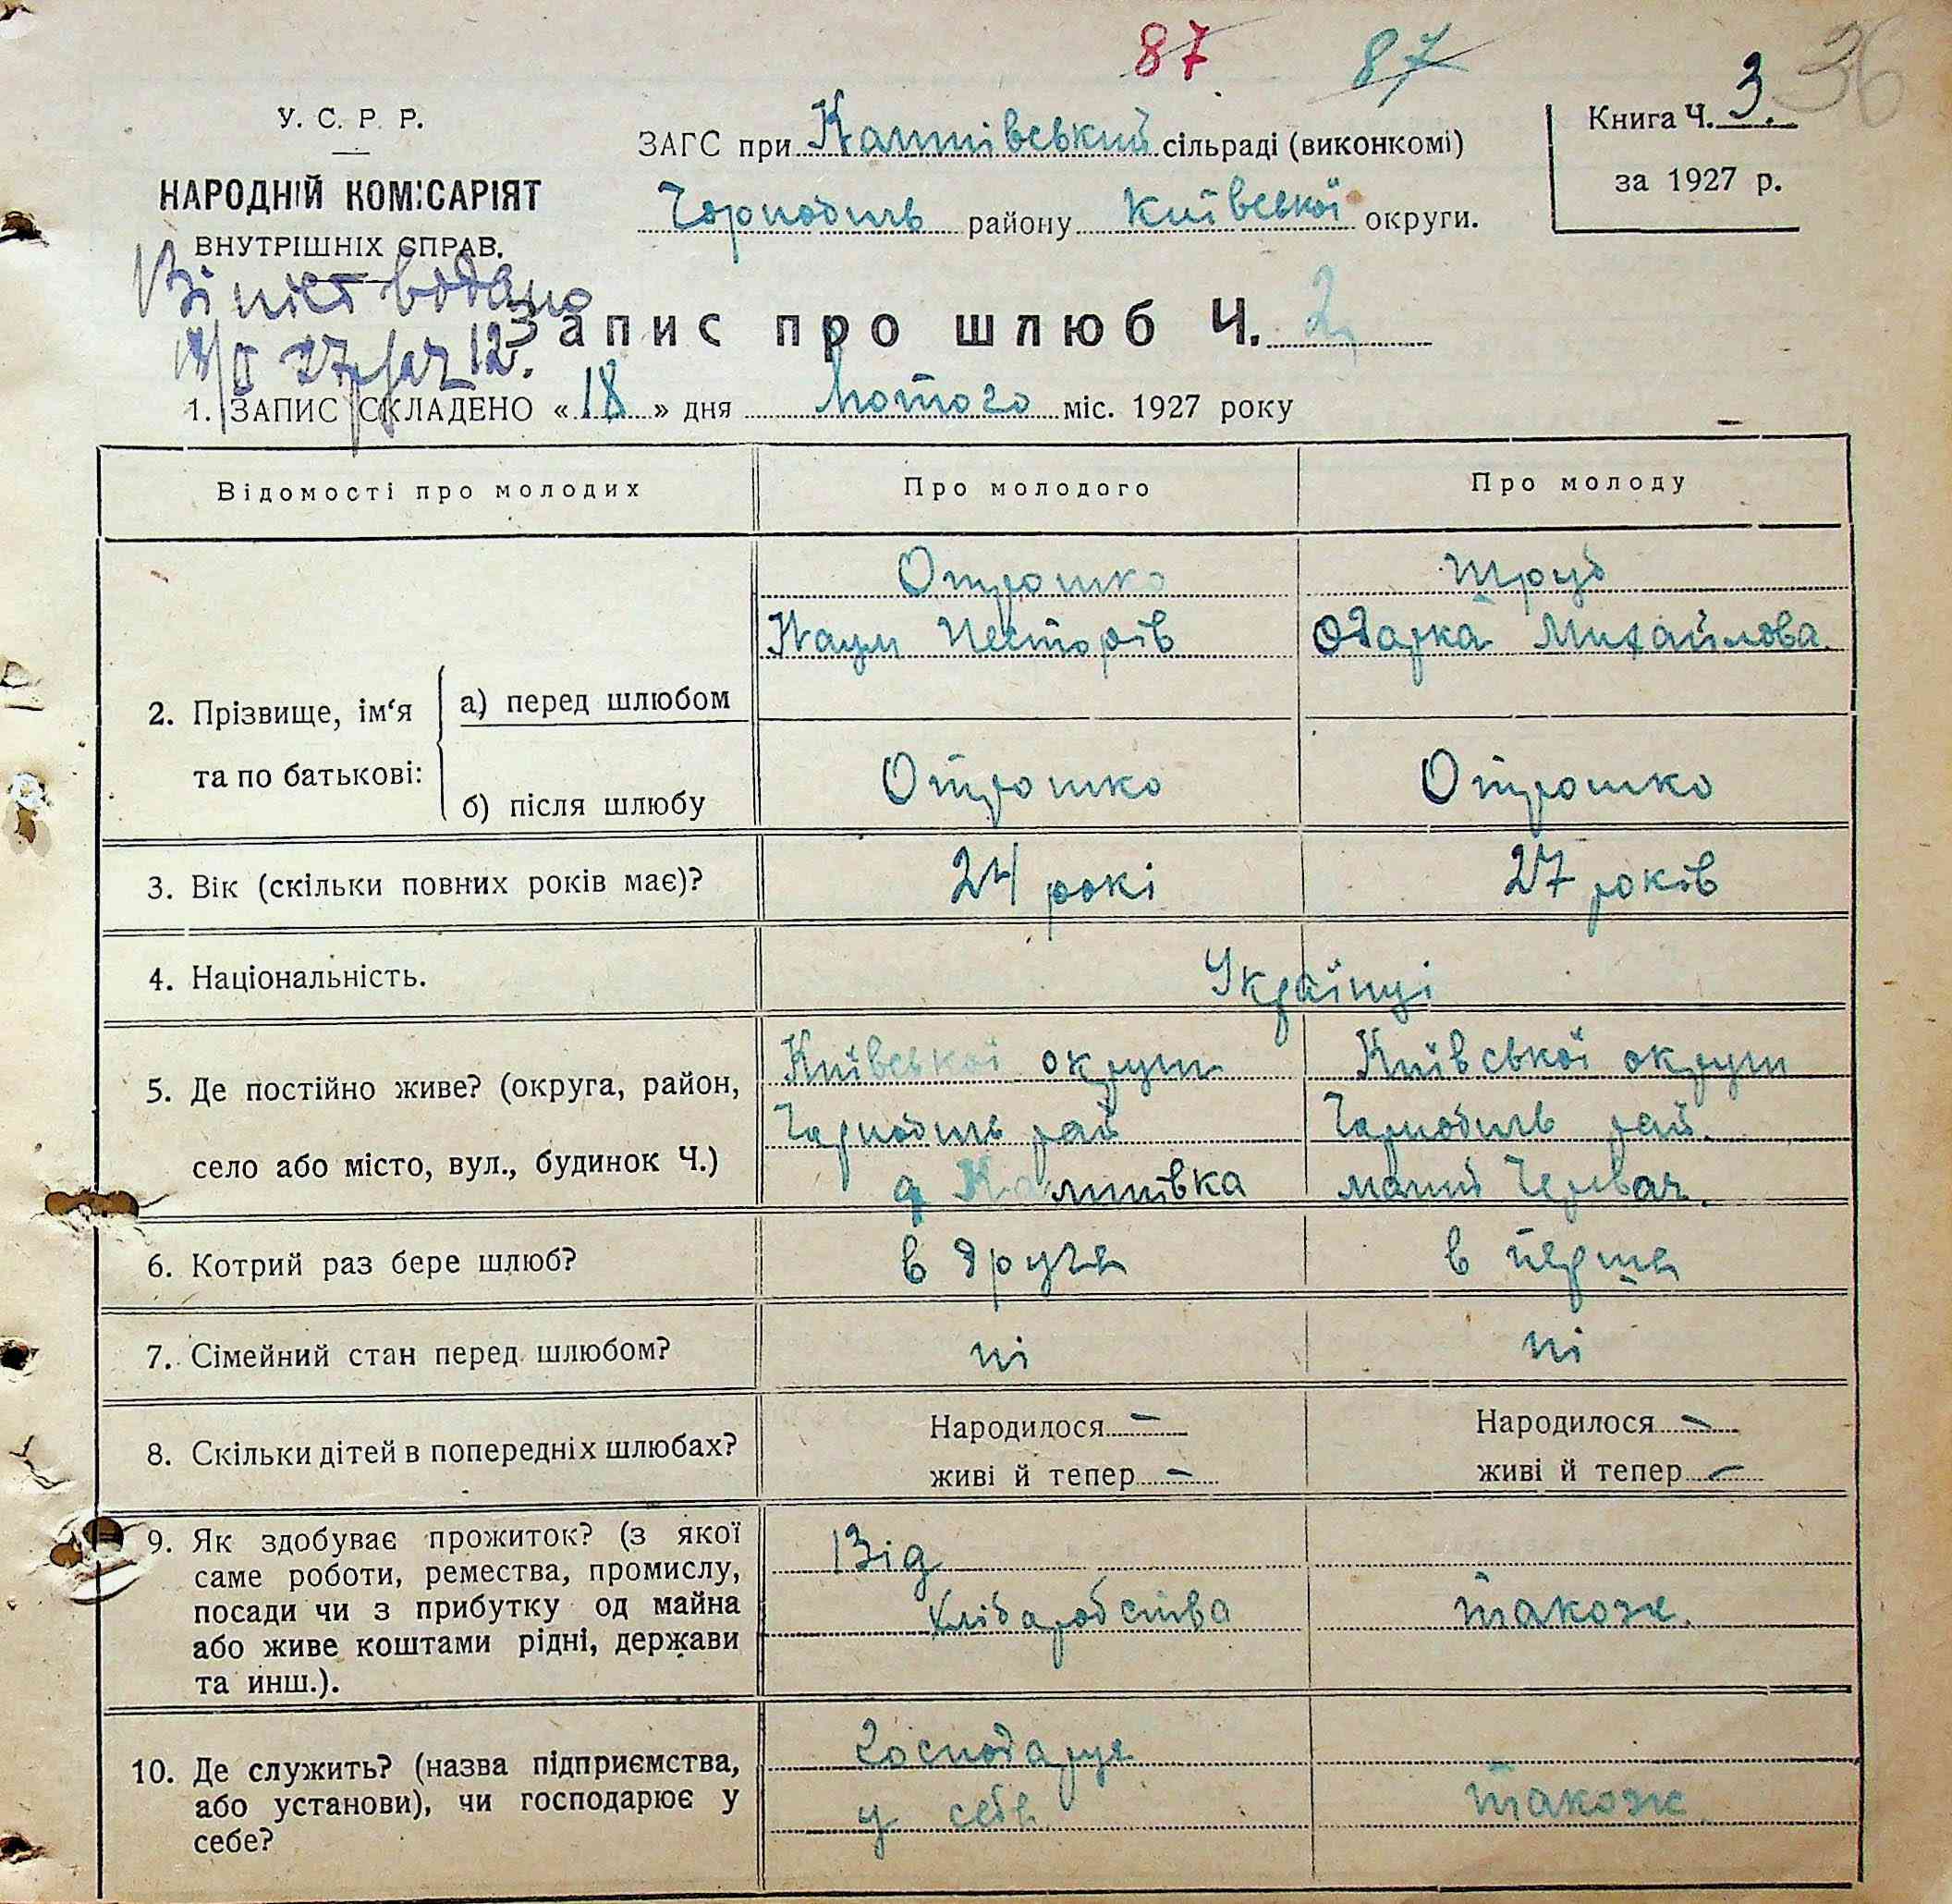 87 87
36
У. С. Р. Р.
НАРОДНІЙ КОМІСАРІЯТ
ВНУТРІШНІХ СПРАВ.
ЗАГС при сільраді (виконкомі)
Чорнобиль району Київської округи.
Книга Ч. 3.
за 1927 р.
видано
27 12.
Запис про шлюб Ч. 2
1. ЗАПИС СКЛАДЕНО «18» дня Лютого міс. 1927 року
Відомості про молодих Про молодого Про молоду
Отрошко Труб
Наум Несторів Одарка Михайлова.
2. Прізвище, ім'я та по батькові:
а) перед шлюбом
б) після шлюбу Отрошко Отрошко
3. Вік (скільки повних років має)? 24 рокі 27 років
4. Національність. Українці
5. Де постійно живе? (округа, район,
село або місто, вул., будинок Ч.)
Київської округи Київської округи
Чорнобиль рай Чорнобиль рай.
6. Котрий раз бере шлюб? в друге в перше
7. Сімейний стан перед шлюбом? ні ні
8. Скільки дітей в попередніх шлюбах?
Народилося – Народилося –
живі й тепер – живі й тепер –
9. Як здобуває прожиток? (з якої
саме роботи, ремества, промислу,
посади чи з прибутку од майна
або живе коштами рідні, держави
та инш.).
Від
хлібаробства також.
10. Де служить? (назва підприємства,
або установи), чи господарює у
себе?
Господарує
у себе також